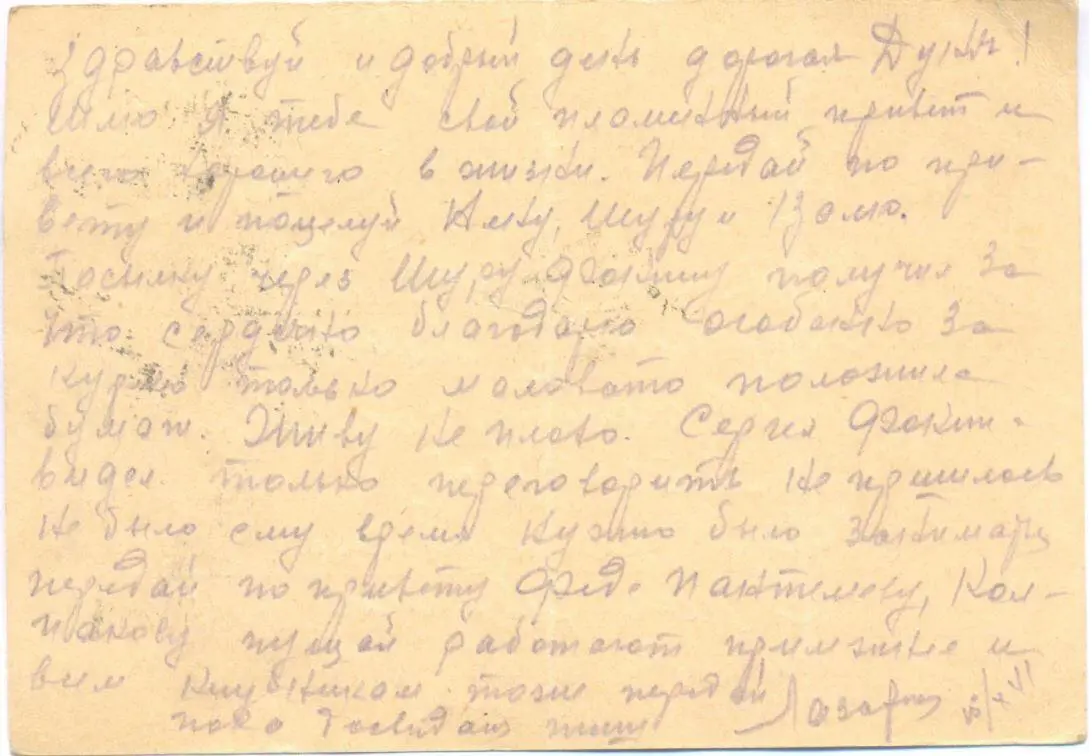 Здравствуй и добрый день дорогая Дуня!
Шлю Я тебе свой пламенный привет и
всего хорошего в жизни. Передай по при-
вету и поцелуй Нику, Шуру и Зою.
Посылку через Шуру Фокину получил за
что сердечно благодарю особенно за
курево только маловато положила
бумаж. Живу не плохо. Сергея Фокин-
видел только переговорить не пришлось
не было ему время нужно было занимать
передай по привету Феде Пантелееву, Кол-
пакову пущай работают прилежнее и
всем тоже передай
пока досвидания пиши